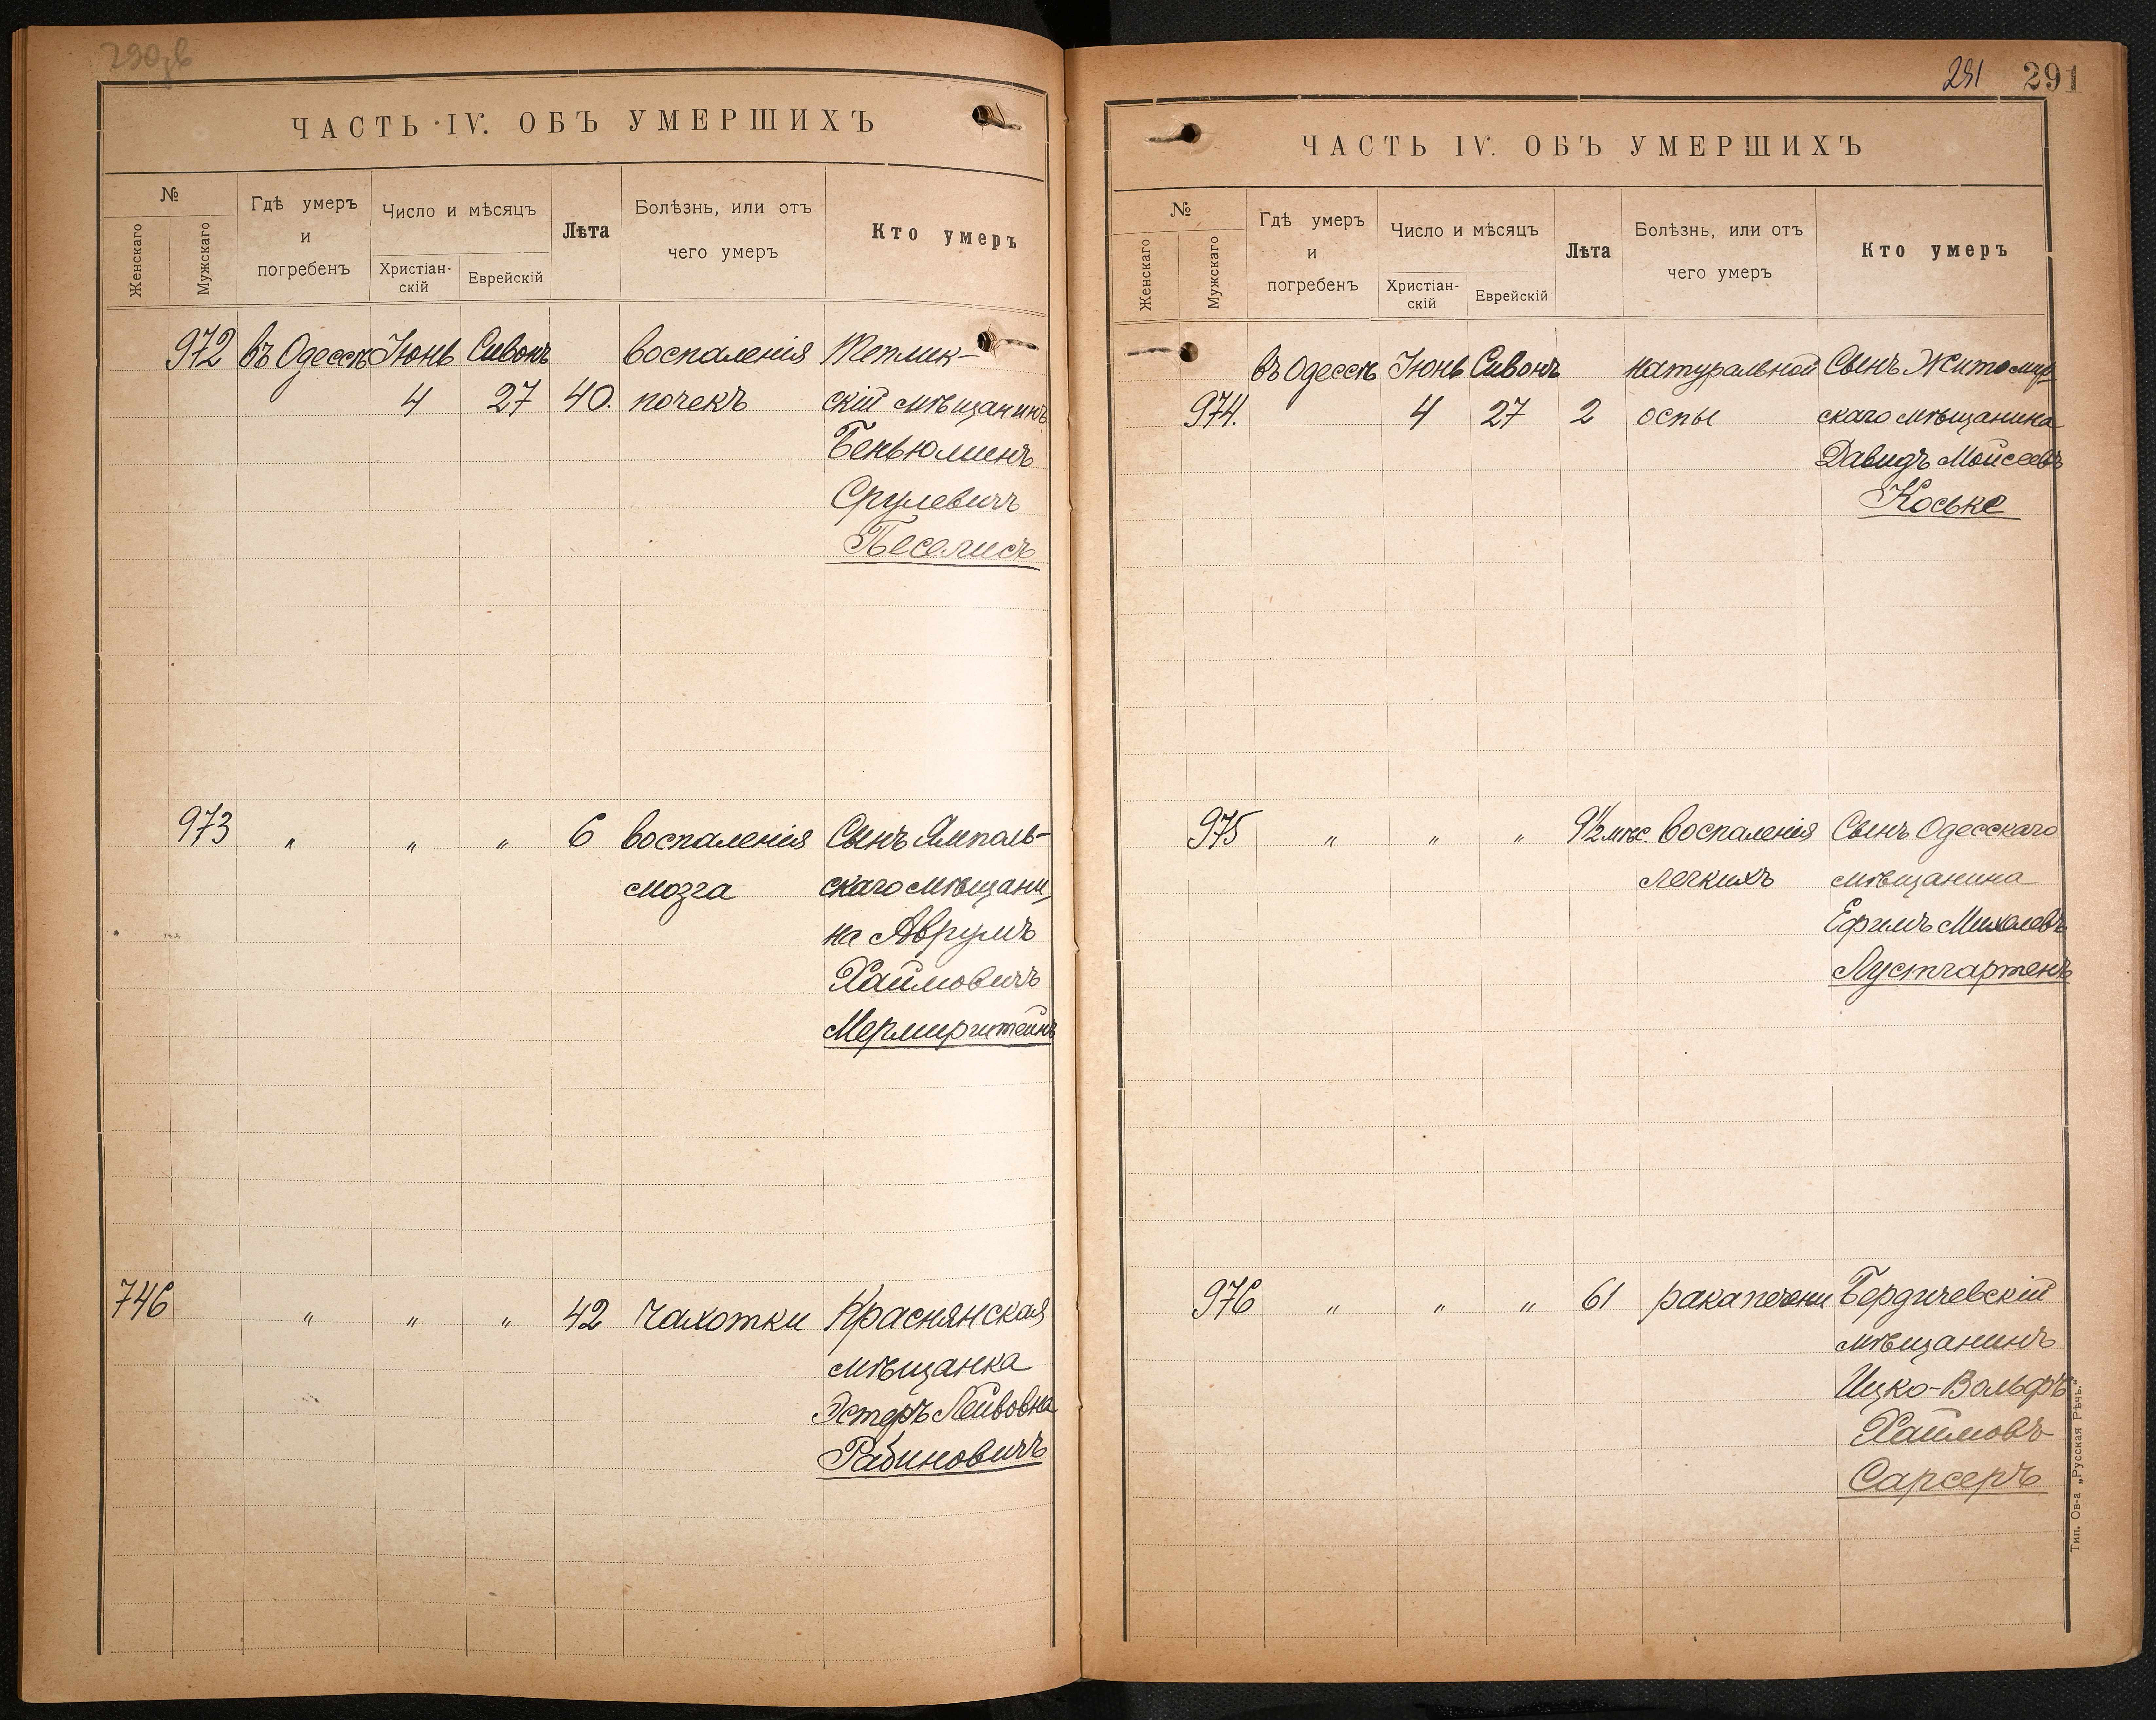 ЧАСТЬ IV. ОБЪ УМЕРШИХЪ
№
Женскаго
Мужскаго
Гдѣ умеръ
и
погребенъ
Число и мѣсяцъ
Христіан-
скій
Еврейскій
Лѣта
Болѣзнь, или отъ
чего умеръ
Кто умеръ
972 въ Одессѣ Іюнь Сивонъ воспаленія Теплик-
4 27 40. почекъ скій мѣщанинъ
Беньюминъ
Срулевичъ
Песелисъ
973 " " " 6 воспаленія Сынъ Ямполь-
мозга скаго мѣщани
на Аврумъ
Хаимовичъ
Мермирштейнъ
746 " " " 42 чахотки Краснянская
мѣщанка
Эстеръ Лейвовна
Рабиновичъ
291 291
ЧАСТЬ IV. ОБЪ УМЕРШИХЪ
№
Женскаго
Мужскаго
Гдѣ умеръ
и
погребенъ
Число и мѣсяцъ
Христіан-
скій
Еврейскій
Лѣта
Болѣзнь, или отъ
чего умеръ
Кто умеръ
въ Одессѣ Іюнь Сивонъ натуральной Сынъ Житомир
974. 4 27 2 оспы скаго мѣщанина
Давидъ Мойсеевъ
Коське
975 " " " 9½ мѣс. воспаленія Сынъ Одесскаго
легкихъ мѣщанина
Ефимъ Михелевъ
Лустгартенъ
976 " " " 61 рака печени Бердичевскій
мѣщанинъ
Ицко-Вольфъ
Хаимовъ
Сарсеръ
Тип. Ов-а „Русская Рѣчь."